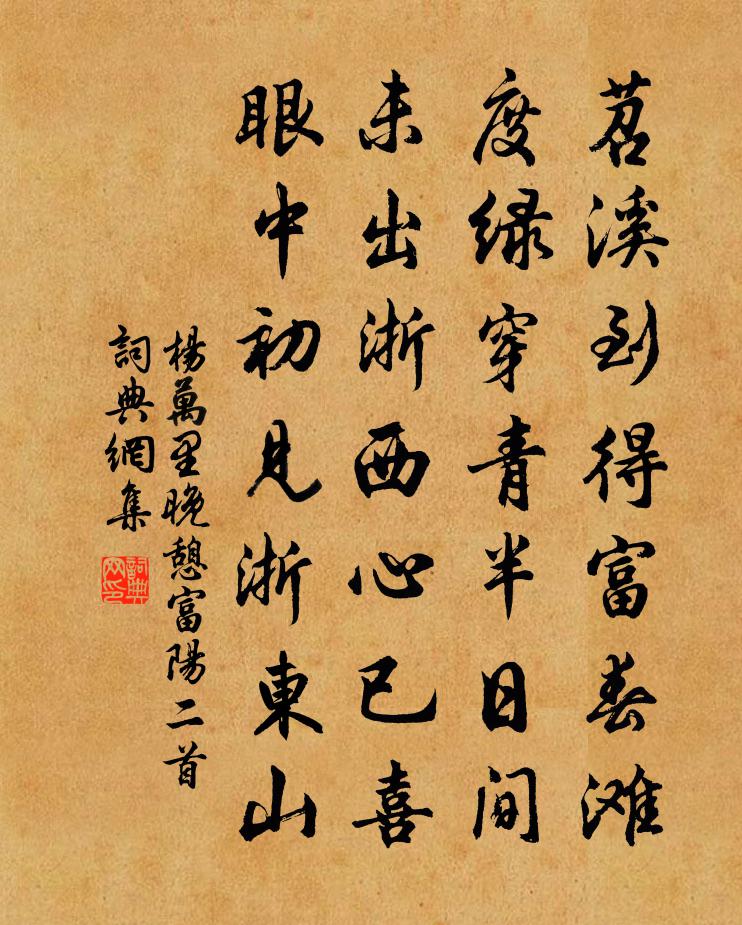 苕溪到得富春滩
度绿穿青半日间
未出浙西心已喜
眼中初见浙東山
楊萬里晚憩富陽二首
詞典網集
詞典網印